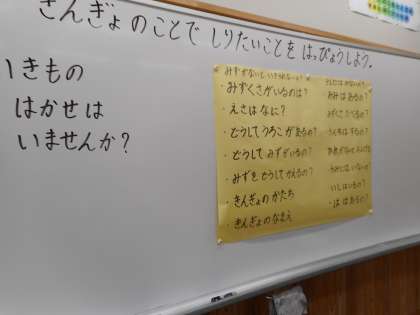 きんぎょのことで しりたいことを はっぴょうしよう。
いきもの
はかせは
いませんか?
みずがないと いきられない?
・みずくさがいるのは?
・えさは なに?
・どうして うろこ が あるの?
・どうして みずがいるの?
・みずを どうして かえるの?
・きんぎょの かたち
・きんぎょの なまえ
あるの?
たべるの?
・うんちは するの?
・いしはいるの?
・は は あるの?